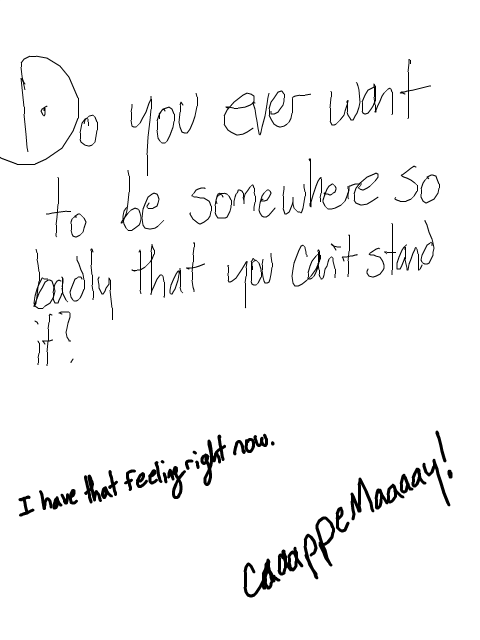 Do you ever want
to be somewhere so
badly that you can't stand
it?
I have that feeling right now.
caaappeMaaaay!